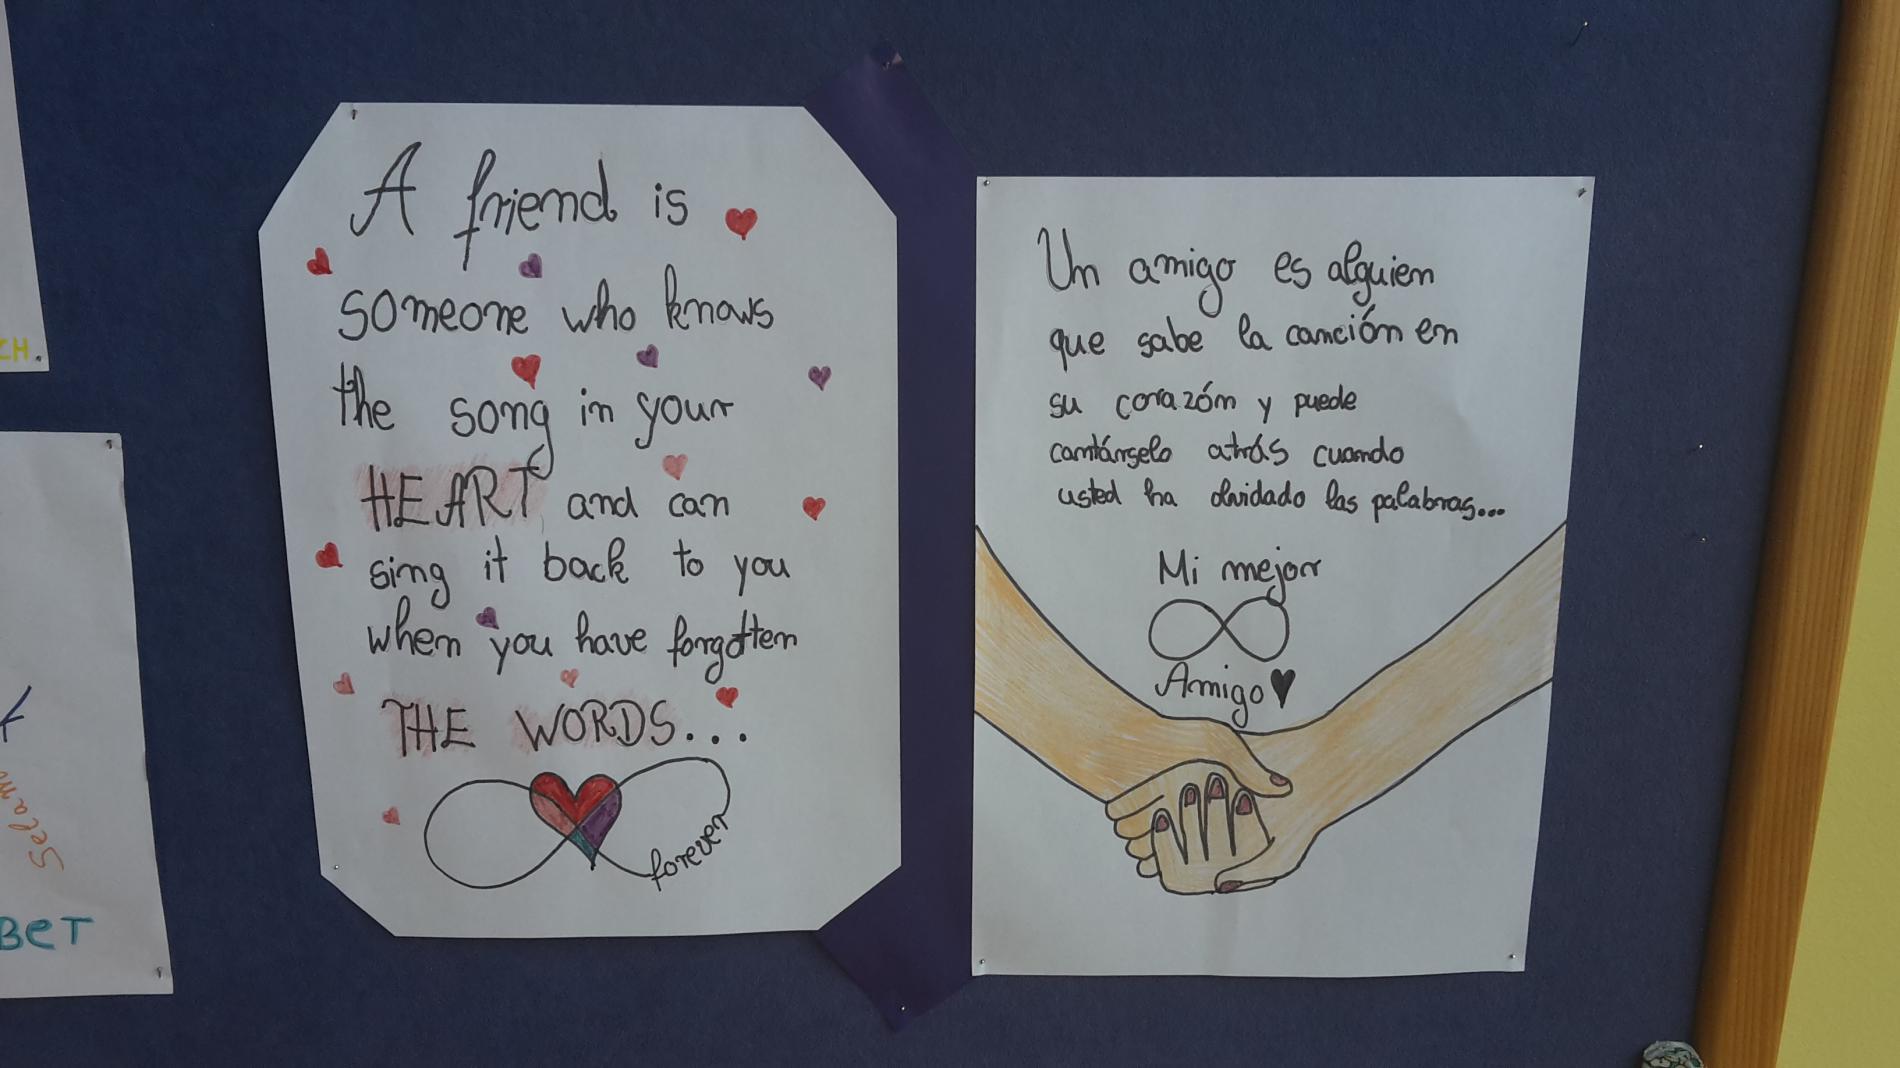 A friend is
someone who knows
the song in your
HEART and can
sing it back to you
when you have forgotten
THE WORDS...
forever
Un amigo es alguien
que sabe la canción en
su corazón y puede
cantárselo atrás cuando
usted ha olvidado las palabras...
Mi mejor
Amigo
CH.
Selam
вет